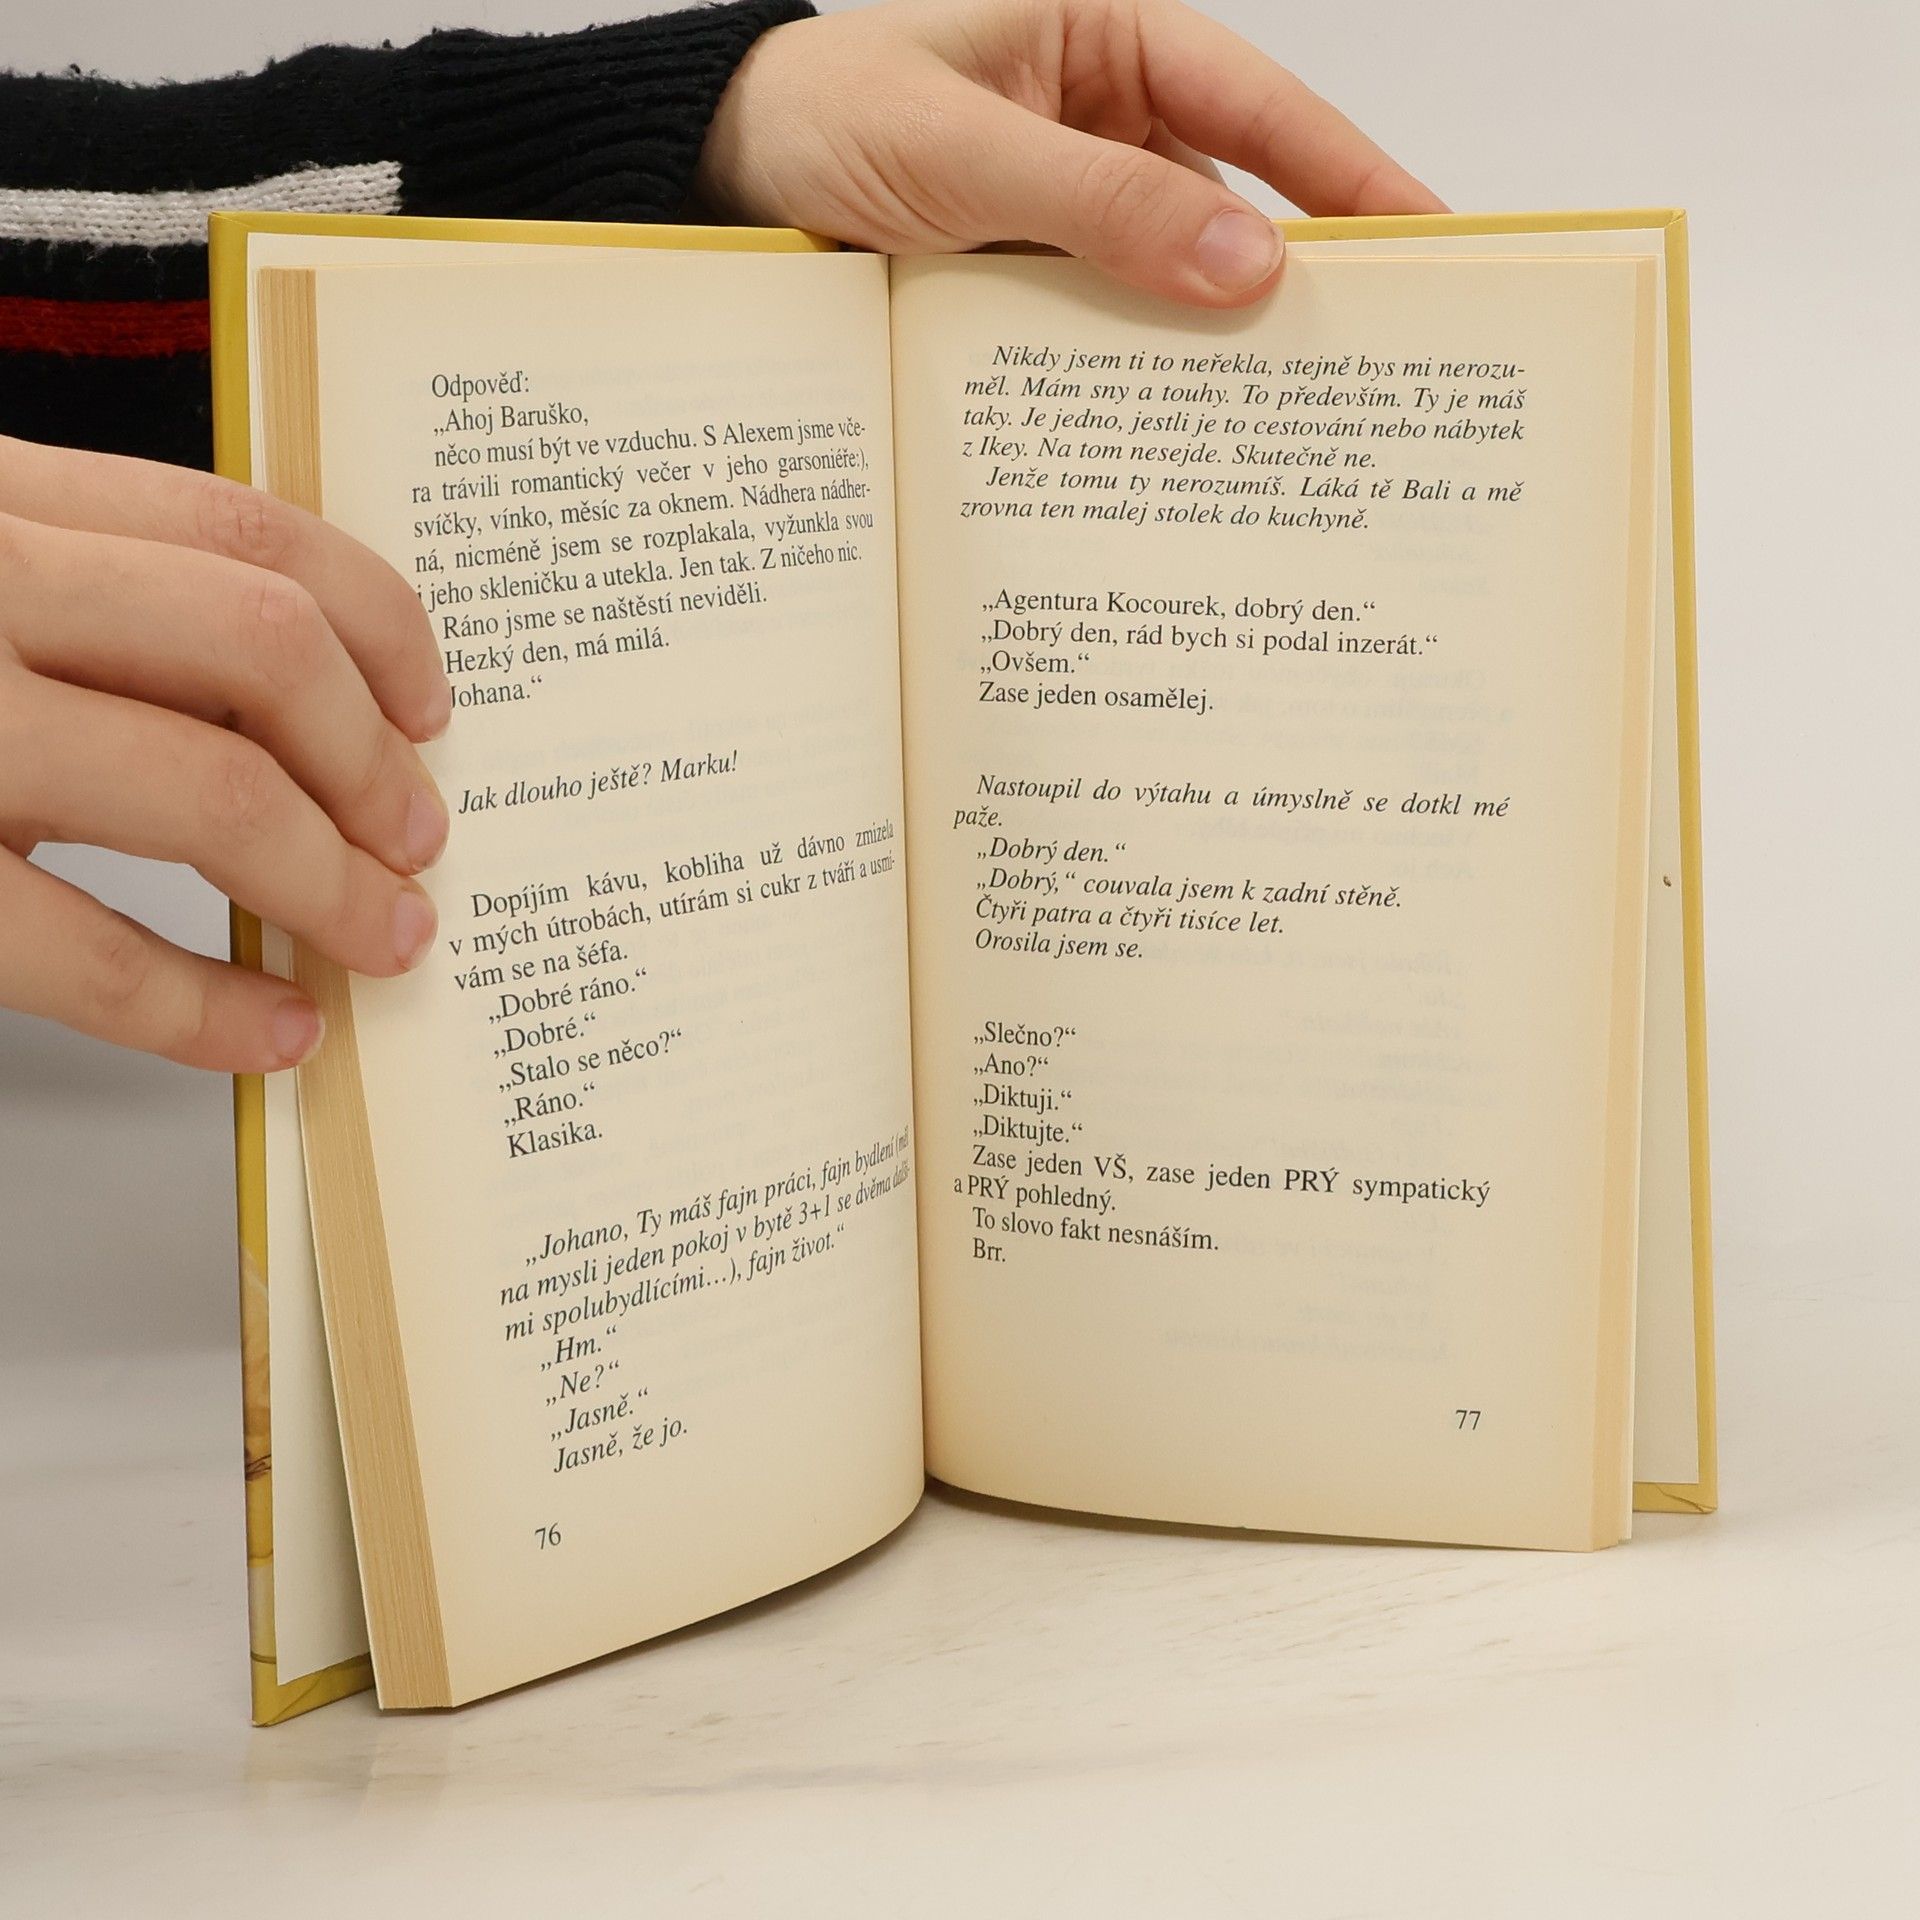 Odpověď:
„Ahoj Baruško,
něco musí být ve vzduchu. S Alexem jsme vče-
ra trávili romantický večer v jeho garsoniéře:),
svíčky, vínko, měsíc za oknem. Nádhera nádher-
ná, nicméně jsem se rozplakala, vyžunkla svou
i jeho skleničku a utekla. Jen tak. Z ničeho nic.
Ráno jsme se naštěstí neviděli.
Hezký den, má milá.
Johana.“
Jak dlouho ještě? Marku!
Dopíjím kávu, kobliha už dávno zmizela
v mých útrobách, utírám si cukr z tváří a usmí-
vám se na šéfa.
„Dobré ráno.“
„Dobré.“
„Stalo se něco?“
„Ráno.“
Klasika.
„Johano, Ty máš fajn práci, fajn bydlení (měl
na mysli jeden pokoj v bytě 3+1 se dvěma další-
mi spolubydlícími...), fajn život.“
„Hm.“
„Ne?“
„Jasně.“
Jasně, že jo.
76
Nikdy jsem ti to neřekla, stejně bys mi nerozu-
měl. Mám sny a touhy. To především. Ty je máš
taky. Je jedno, jestli je to cestování nebo nábytek
z Ikey. Na tom nesejde. Skutečně ne.
Jenže tomu ty nerozumíš. Láká tě Bali a mě
zrovna ten malej stolek do kuchyně.
„Agentura Kocourek, dobrý den.“
„Dobrý den, rád bych si podal inzerát.“
„Ovšem.“
Zase jeden osamělej.
Nastoupil do výtahu a úmyslně se dotkl mé
paže.
„Dobrý den.“
„Dobrý,“ couvala jsem k zadní stěně.
Čtyři patra a čtyři tisíce let.
Orosila jsem se.
„Slečno?“
„Ano?“
„Diktuji.“
„Diktujte.“
Zase jeden VŠ, zase jeden PRÝ sympatický
a PRÝ pohledný.
To slovo fakt nesnáším.
Brr.
77